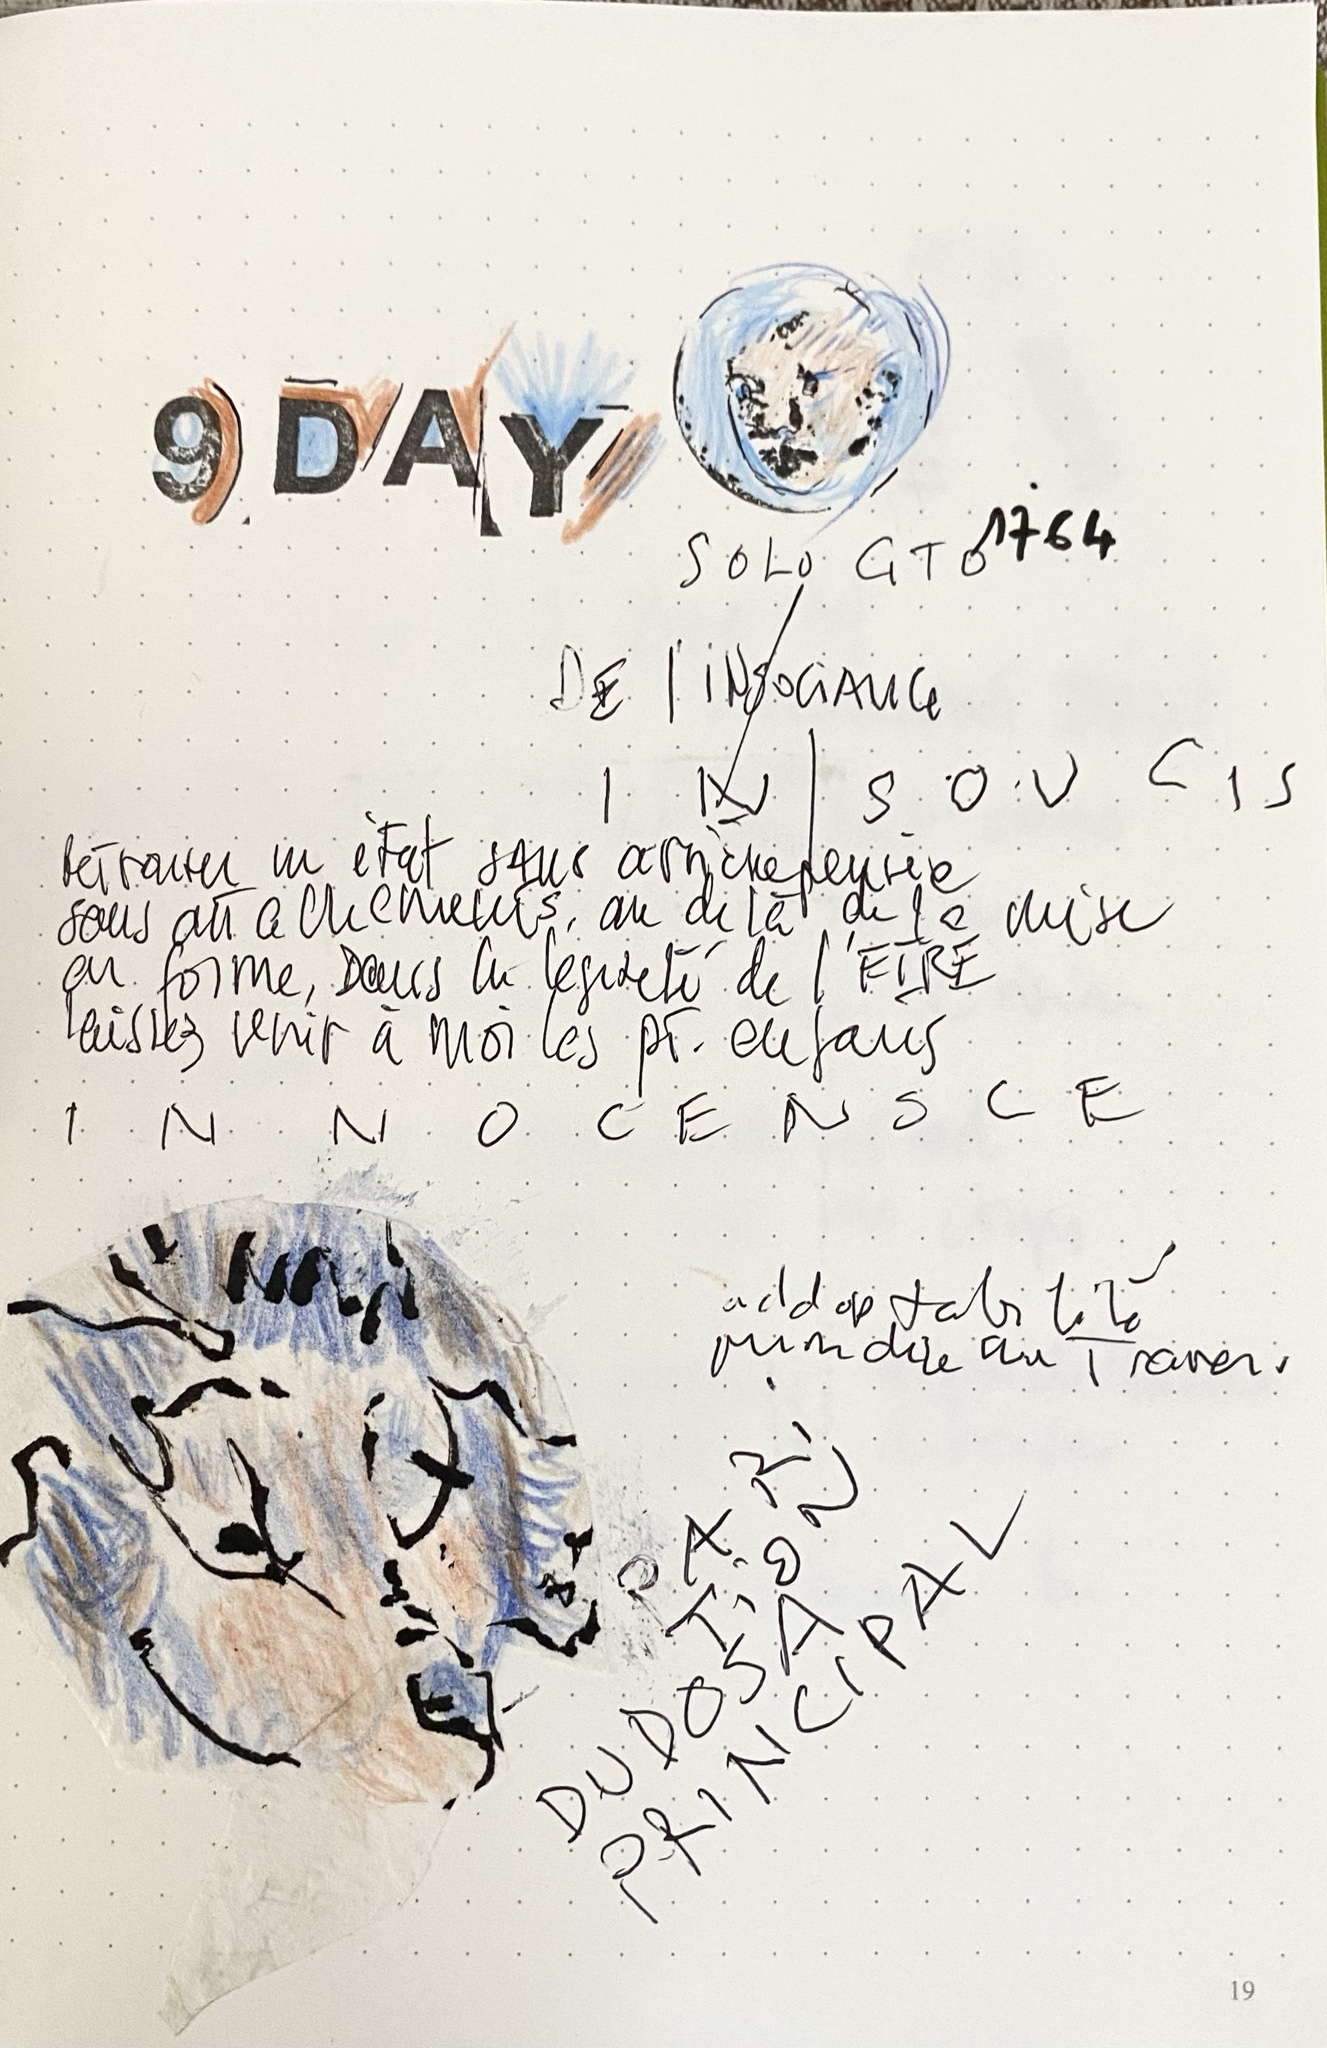 9 DAY
SOLO GTO 1764
DE l'INSOCIANCE
IN SOUCIS
retrouver un état sans arrièrepensée
sans attachements, au delà de la mise
en forme, Dans la légèreté de l'ETRE
laissez venir à moi les pt. enfants
INNOCENSCE
addaptabilité
au Travers
PARTITION
DUDOSA
PRINCIPAL
19